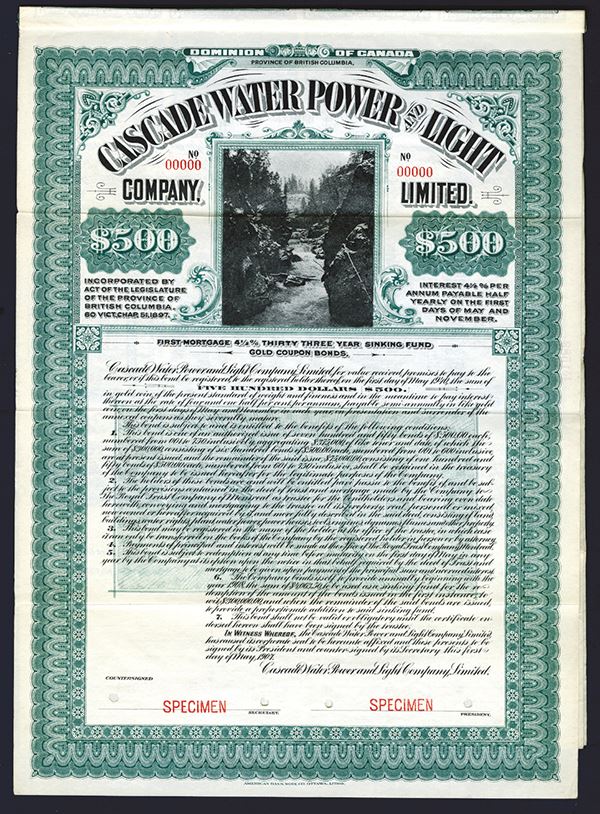 DOMINION OF CANADA
PROVINCE OF BRITISH COLUMBIA,
CASCADE WATER POWER AND LIGHT
No No
00000 00000
COMPANY, LIMITED.
$500 $500
INCORPORATED BY
ACT OF THE LEGISLATURE
OF THE PROVINCE OF
BRITISH COLUMBIA.
60 VICT, CHAP. 51, 1897.
INTEREST 4½% PER
ANNUM PAYABLE HALF
YEARLY ON THE FIRST
DAYS OF MAY AND
NOVEMBER.
FIRST MORTGAGE 4½% THIRTY THREE YEAR SINKING FUND
GOLD COUPON BONDS.
Cascade Water Power and Light Company, Limited, for value received promises to pay to the
bearer, or if this bond be registered, to the registered holder thereof, on the first day of May, 1940, the sum of
FIVE HUNDRED DOLLARS $500.
in gold coin of the present standard of weight and fineness and in the meantime to pay interest
thereon at the rate of four and one half per cent per annum, payable semi-annually in like gold
coin on the first days of May and November in each year, upon presentation and surrender of the
annexed coupons as they severally mature.
This bond is subject to and is entitled to the benefits of the following conditions:
1. This bond is one of an authorized issue of seven hundred and fifty bonds of $500.00 each,
numbered from 001 to 750 inclusive, aggregating $375,000 of like tenor and date, of which the
sum of $300,000 consisting of six hundred bonds of $500.00 each, numbered from 001 to 600 inclusive
are at present issued, and the remainder of the said issue, $75,000.00 consisting of one hundred and
fifty bonds of $500.00 each, numbered from 601 to 750 inclusive, shall be retained in the treasury
of the Company to be issued hereafter for the legitimate purposes of the Company.
2. The holders of these bonds are and will be entitled pari passu to the benefit of and be sub-
ject to the provisions contained in the deed of trust and mortgage made by the Company to
The Royal Trust Company of Montreal as trustee for the bondholders and bearing even date
herewith, conveying and mortgaging to the trustee all its property, real, personal or mixed
now owned or hereafter acquired by it
3. This bond may be registered in the name of the holder at the office of the trustee, in which case
it can only be transferred on the books of the Company by the registered holder in person or by attorney.
4. Payments of principal and interest will be made at the office of The Royal Trust Company, Montreal.
5. This bond is subject to redemption at any time before maturity on the first day of May in any
year by the Company at its option upon the notice in that behalf required by the deed of trust and
mortgage to be given upon payment of the principal sum and accrued interest.
6. The Company binds itself to provide annually beginning with the
year 1908, the sum of to be used as a sinking fund for the re-
demption of the amount of the bonds issued in the first instance, to
wit $300,000.00, and when the remainder of the said bonds are issued,
to provide a proportionate addition to said sinking fund.
7. This bond shall not be valid or obligatory until the certificate en-
dorsed hereon shall have been signed by the trustee.
In Witness Whereof, the Cascade Water Power and Light Company, Limited,
has caused its corporate seal to be hereunto affixed and these presents to be
signed by its President and counter-signed by its Secretary this first
day of May, 1907.
Cascade Water Power and Light Company, Limited.
COUNTERSIGNED
SPECIMEN SPECIMEN
SECRETARY. PRESIDENT.
AMERICAN BANK NOTE CO. OTTAWA